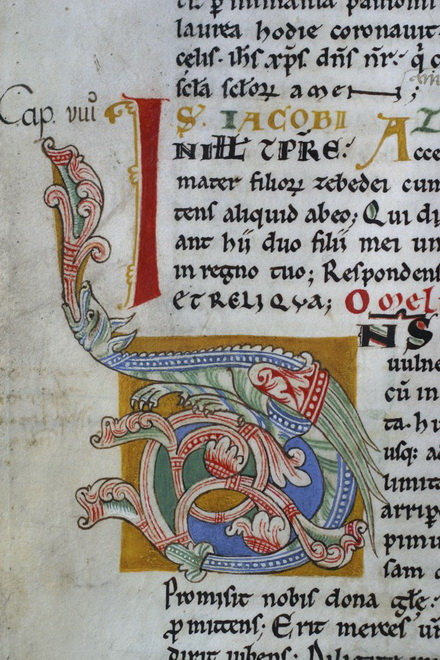 laurea hodie coronauit
celis. ihs xp̄s. dn̄s nr̄. q c
scl̄a scl̄oꝝ amen;
Cap. viii
S. IACOBI AL
Acce
mater filioꝝ zebedei cum
tens aliquid abeo; Qui di
ant hii duo filii mei un
in regno tuo; Respondens
ET RELIQVA; Omel
NS
uulne
cū in
ta. hu
usq: ad
limita
arripe
pimu
sam
Promisit nobis dona glē:
ꝓmittens; Erit merces ur̄
dixit iubens;